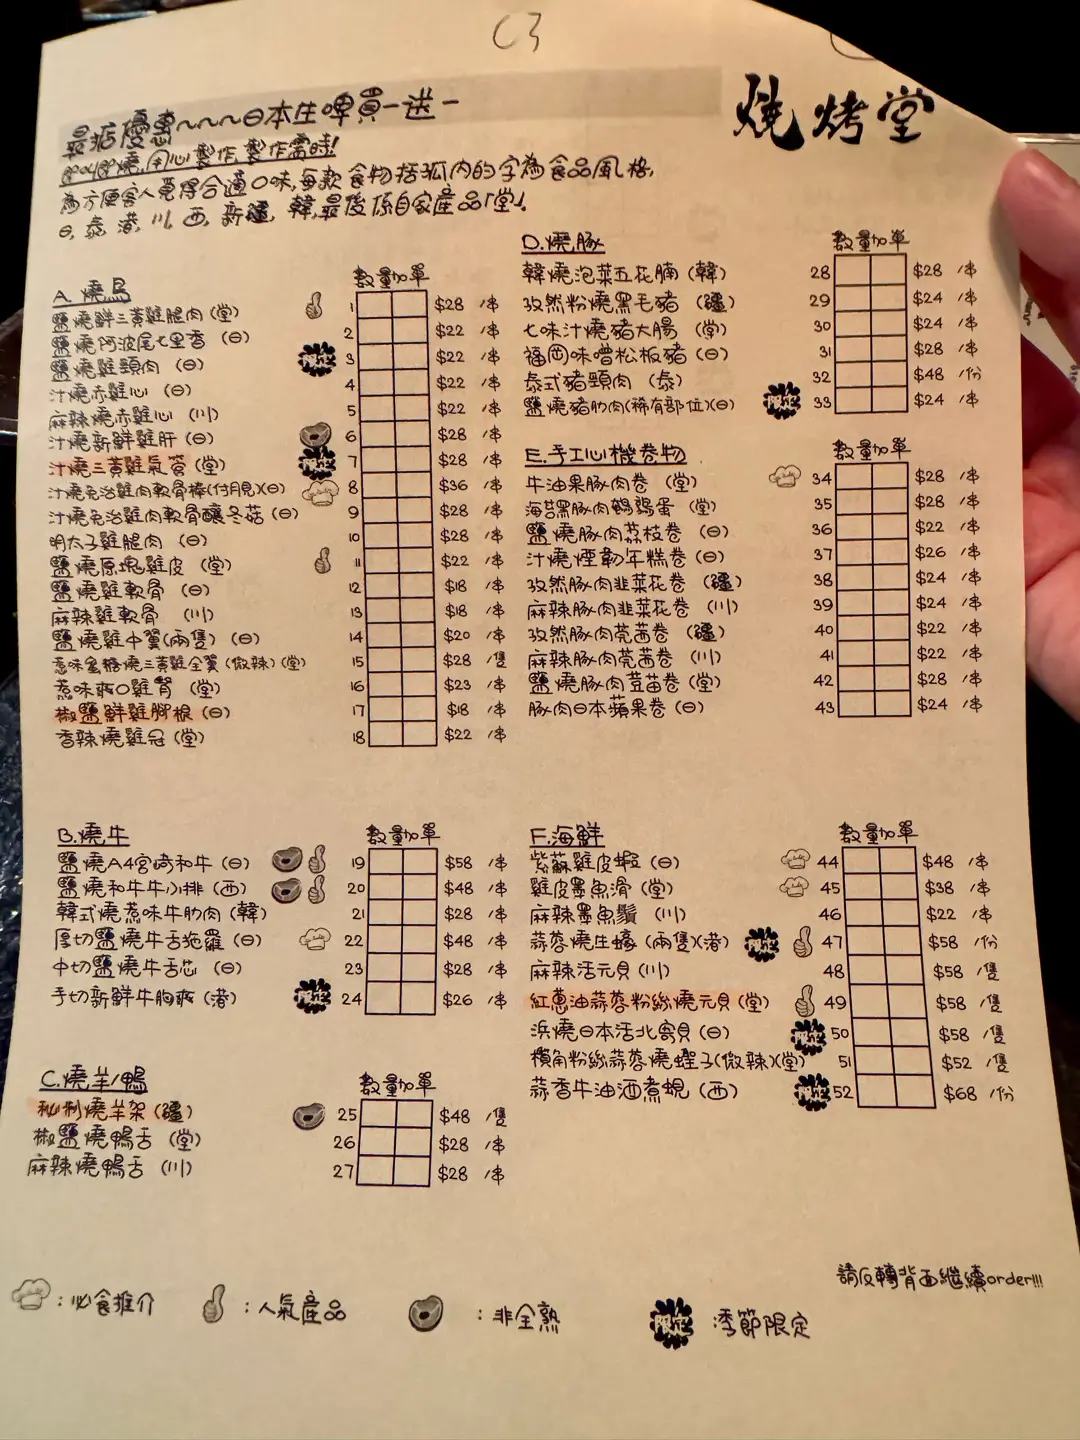 C3
燒烤堂
最掂優惠~~~日本生啤買一送一
即叫即燒,用心製作,製作需時!
為方便客人覓得合適口味,每款食物括弧內的字為食品風格,
日,泰,港,川,西,新疆,韓,最後係自家產品「堂」.
A.燒鳥 數量加單
鹽燒鮮三黃雞腿肉(堂) 1 $28 /串
鹽燒阿波尾七里香(日) 2 $22 /串
鹽燒雞頸肉(日) 限定 3 $22 /串
汁燒赤雞心(日) 4 $22 /串
麻辣燒赤雞心(川) 5 $22 /串
汁燒新鮮雞肝(日) 6 $28 /串
汁燒三黃雞氣管(堂) 限定 7 $28 /串
汁燒免治雞肉軟骨棒(付月見)(日) 8 $36 /串
汁燒免治雞肉軟骨釀冬菇(日) 9 $28 /串
明太子雞腿肉(日) 10 $28 /串
鹽燒原塊雞皮(堂) 11 $22 /串
鹽燒雞軟骨(日) 12 $18 /串
麻辣雞軟骨(川) 13 $18 /串
鹽燒雞中翼(兩隻)(日) 14 $20 /串
惹味蜜糖燒三黃雞全翼(微辣)(堂) 15 $28 /隻
惹味爽口雞腎(堂) 16 $23 /串
椒鹽鮮雞腳根(日) 17 $18 /串
香辣燒雞冠(堂) 18 $22 /串
B.燒牛 數量加單
鹽燒A4宮崎和牛(日) 19 $58 /串
鹽燒和牛牛小排(西) 20 $48 /串
韓式燒惹味牛肋肉(韓) 21 $28 /串
厚切鹽燒牛舌拖羅(日) 22 $48 /串
中切鹽燒牛舌芯(日) 23 $28 /串
手切新鮮牛胸爽(港) 限定 24 $26 /串
C.燒羊/鴨 數量加單
秘制燒羊架(疆) 25 $48 /隻
椒鹽燒鴨舌(堂) 26 $28 /串
麻辣燒鴨舌(川) 27 $28 /串
D.燒豚 數量加單
韓燒泡菜五花腩(韓) 28 $28 /串
孜然粉燒黑毛豬(疆) 29 $24 /串
七味汁燒豬大腸(堂) 30 $24 /串
福岡味噌松板豬(日) 31 $28 /串
泰式豬頸肉(泰) 32 $48 /份
鹽燒豬肋肉(稀有部位)(日) 限定 33 $24 /串
E.手工心機卷物 數量加單
牛油果豚肉卷(堂) 34 $28 /串
海苔黑豚肉鵪鶉蛋(堂) 35 $28 /串
鹽燒豚肉荔枝卷(日) 36 $22 /串
汁燒煙韌年糕卷(日) 37 $26 /串
孜然豚肉韭菜花卷(疆) 38 $24 /串
麻辣豚肉韭菜花卷(川) 39 $24 /串
孜然豚肉莞茜卷(疆) 40 $22 /串
麻辣豚肉莞茜卷(川) 41 $22 /串
鹽燒豚肉荳苗卷(堂) 42 $28 /串
豚肉日本蘋果卷(日) 43 $24 /串
F.海鮮 數量加單
紫蘇雞皮蝦(日) 44 $48 /串
雞皮墨魚滑(堂) 45 $38 /串
麻辣墨魚鬚(川) 46 $22 /串
蒜蓉燒生蠔(兩隻)(港) 限定 47 $58 /份
麻辣活元貝(川) 48 $58 /隻
紅蔥油蒜蓉粉絲燒元貝(堂) 49 $58 /隻
浜燒日本活北寄貝(日) 限定 50 $58 /隻
欖角粉絲蒜蓉燒蟶子(微辣)(堂) 51 $52 /隻
蒜香牛油酒煮蜆(西) 限定 52 $68 /份
請反轉背面繼續order!!!
:必食推介 :人氣產品 :非全熟 限定 季節限定